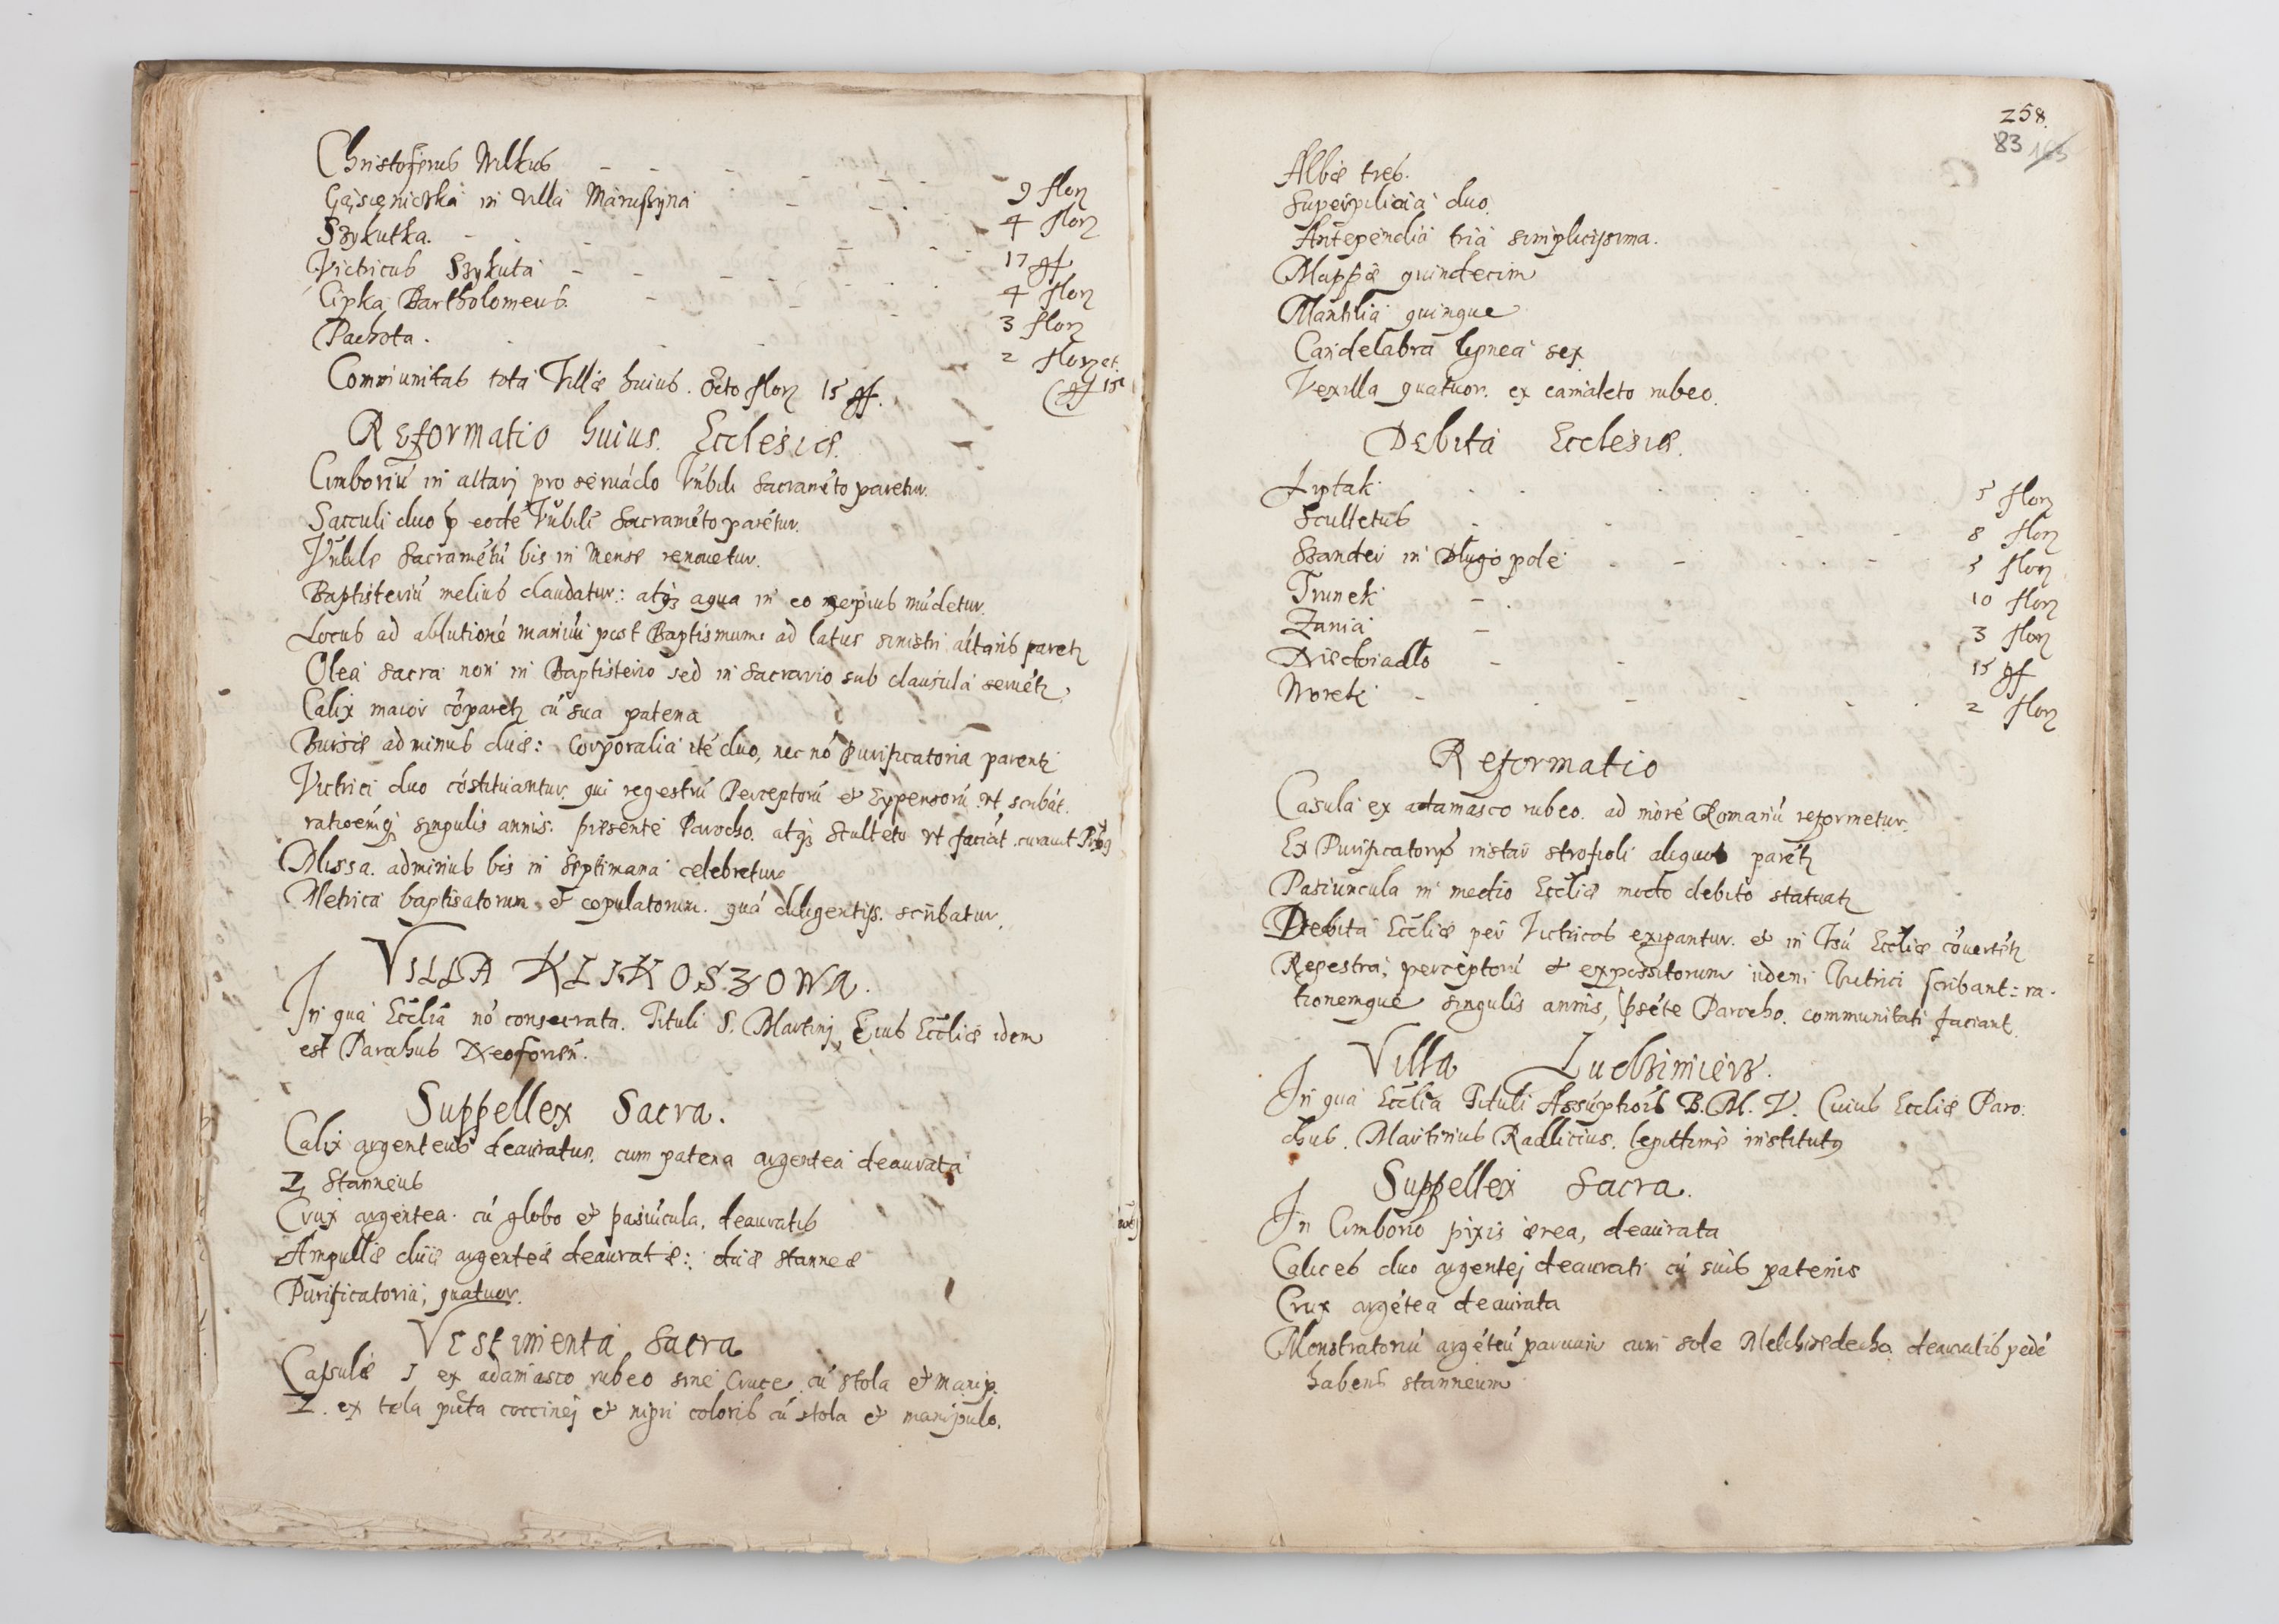 Christoferus Wilkus - - - - - - 9 florz
Gąsięnicżka in villa Maruszyna - - - 4 florz
Szykutka. - - - - - 17 gf
Victricus Szykuta - - - - - - 4 florz
Cipka Bartholomeus. - - - 3 florz
Pachota. - - - 2 florz et
(gf 15
Communitas tota Villæ huius. Octo florz 15 gf.
Reformatio huius Ecclesiæ.
Cimboriū in altarj pro seruādo Vnbili Sacramēto paretur.
Sacculi duo p eodē Vnbili Sacramēto parētur.
Vnbile Sacramētū bis in Mense renouetur.
Baptisteriū melius claudatur: atqȝ aqua in eo sæpius mūdetur.
Locus ad ablutionē manuū post Baptismum ad latus sinistri altaris paretz
Olea sacra non in Baptisterio sed in sacrario sub clausula seruētz
Calix maior cōparetz cū sua patena
Bursæ ad minus duæ: Corporalia itē duo, nec nō Purificatoria parentz
Victrici duo cōstituantur. qui regestrū Perceptorū et Expensorū vt scribāt.
rationēqȝ singulis annis. præsente Parocho. atqȝ Sculteto vt faciāt curauit
Missa. adminus bis in septimana celebretur
Metrica baptisatorum et copulatorum. quā diligentiss. scribatur.
VILLA KLIKOSZOWA.
In qua Ecclīa nō consecrata. Tituli S. Martinj, Eius Ecclīæ idem
est Parochus Neoforień.
Suppellex Sacra.
Calix argenteus deauratus, cum patena argentea deaurata
2 Stanneus
Crux argentea. cū globo et pasiūcula, deauratis
Ampullæ duæ argenteæ deauratæ: duæ stanneæ
Purificatoria, quatuor.
Vestimenta Sacra
Casulæ 1 ex adamasco rubeo sine Cruce cū stola et manip.
2. ex tela picta coccinej et nigri coloris cū stola et manipulo.
258.
83 163
Albæ tres.
Superpilicia duo.
Antependia tria simplicissima.
Mappæ quindecim
Mantilia quinque
Candelabra lignea sex
Vexilla quatuor. ex camaleto rubeo.
Debita Ecclesiæ.
Liptak - - - - - 5 florz
Scultetus - - - - 8 florz
Szandei in Dlugopole - - - - 5 florz
Trunek - - 10 florz
Zania - 3 florz
Niedoiadlo - - 15 gf
Worek - - - - - 2 florz
Reformatio
Casula ex adamasco rubeo. ad morē Romanū reformetur.
Ex Purificatorijs instar strofioli aliquot parētz
Pasiuncula in medio Ecclīæ modo debito statuatz
Debita Ecclīæ per Victricos exigantur. et in Vsū Ecclīæ cōuertētz
Regestra, perceptorū et expositorum iidem Victrici scribant: ra-
tionemque singulis annis, psēte Parocho. communitati faciant.
Villa Ludzimierz.
In qua Ecclīa Tituli Assūptiōis B. M. V. Cuius Ecclīæ Paro:
chus. Martinus Radlicius. legittime institutȝ
Suppellex Sacra.
In Cimborio pixis ærea, deaurata
Calices duo argentej deaurati cū suis patenis
Crux argētea deaurata
Monstratoriū argēteū paruum cum sole Melchisedecho deauratis pedē
habens stanneum